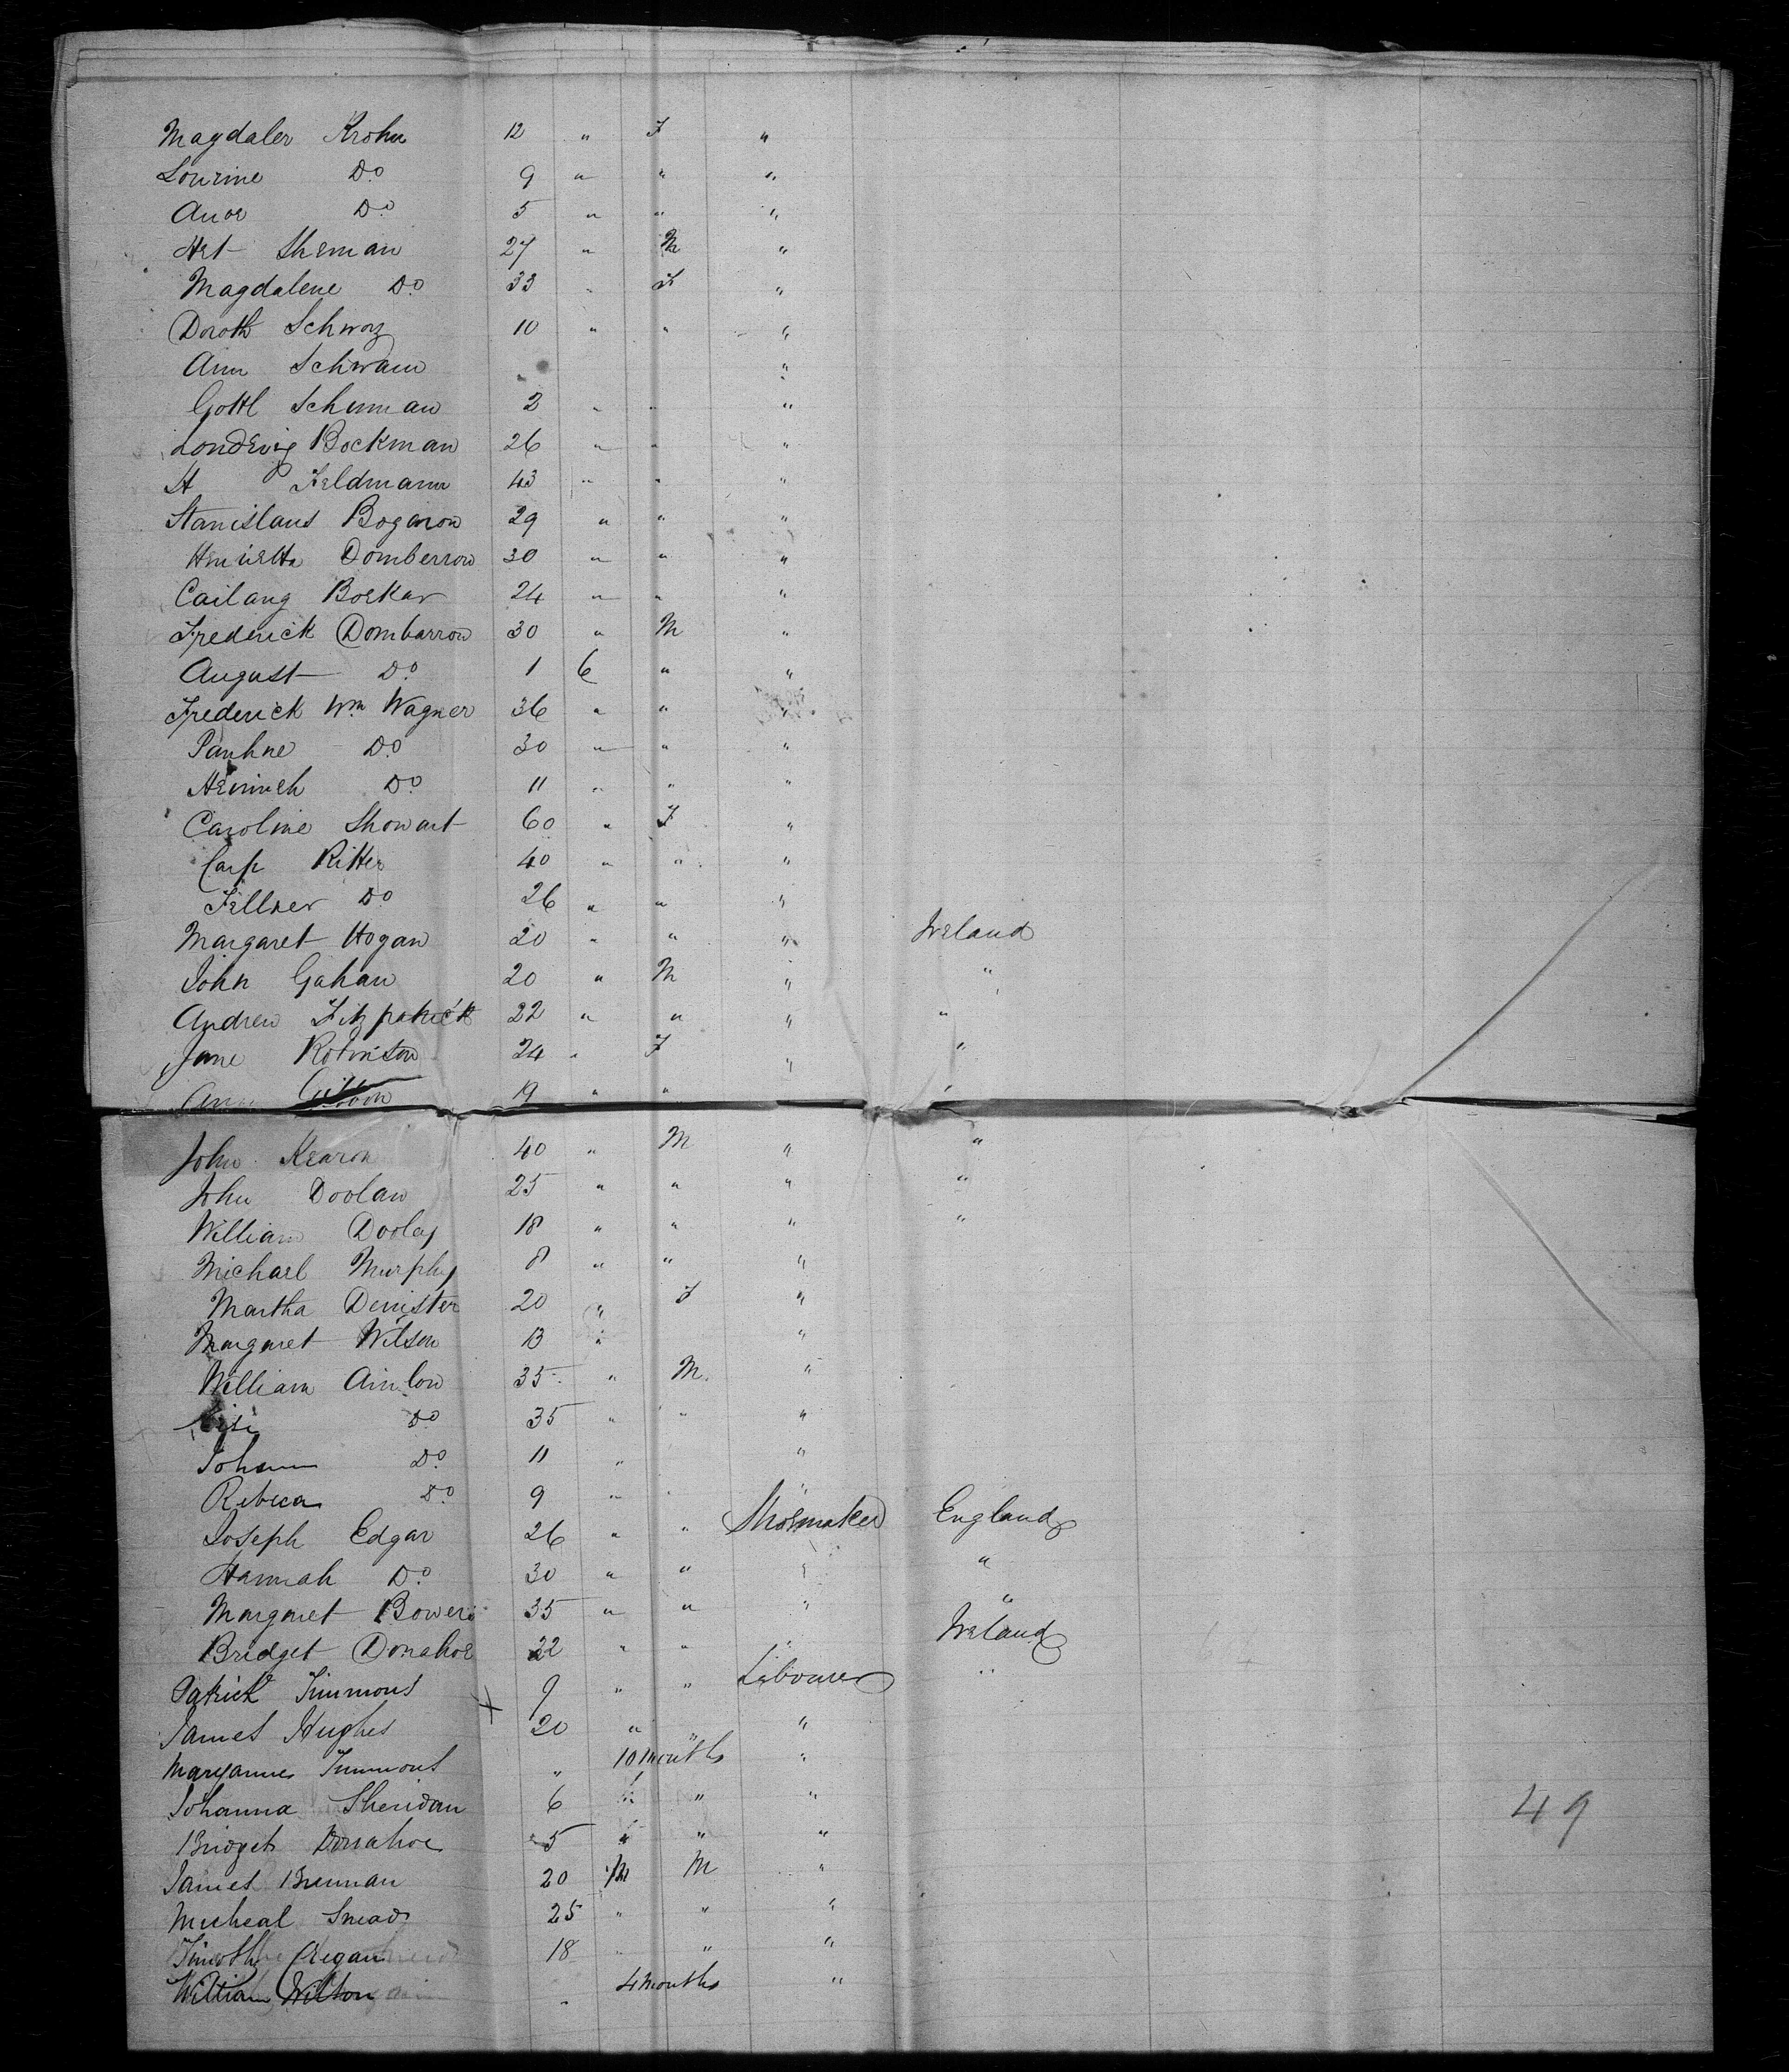 Magdaler Krohn 12 " F "
Lourine Do 9 " " "
Anor Do 5 " " "
Het Sheman 27 " M "
Magdalene Do 33 " F "
Doroth Schworz 10 " " "
Ann Schwam "
Gottl Schuman 2 " " "
Londewig Bockman 26 " " "
H P Feldmann 43 " " "
Stanislaus Bogenow 29 " " "
Henrietta Domberrow 30 " " "
Cailang Boekar 24 " " "
Frederick Dombarrow 30 " M "
August Do 1 6 " "
Frederick Wm Wagner 36 " " "
Pauline Do 30 " " "
Heinrich Do 11 " " "
Caroline Showart 60 " F "
Carp Ritter 40 " " "
Fellner Do 26 " " "
Margaret Hogan 20 " " " Ireland
John Gahan 20 " M " "
Andrew Fitzpatrick 22 " " " "
Jane Robinson 24 " F " "
Ann Gibson 19 " " "
John Kearon 40 " M " "
John Doolan 25 " " " "
William Dooley 18 " " " "
Michael Murphy 8 " " "
Martha Demister 20 " F "
Margaret Wilson 13 " "
William Ainlow 35 " M. "
Do 35 " " "
Johann Do 11 " "
Rebeca Do 9 " " "
Joseph Edgar 26 " " Shoemaker England
Hannah Do 30 " " " "
Margaret Bowers 35 " " " "
Bridget Donahoe 22 " " " Ireland
Patrick Timmons 9 " " Labourer "
James Hughes + 20 " " "
Maryanne Timmons " 10 months "
Johanna Sheridan 6 " " "
Bridget Donahoe 5 " " "
49
James Brennan 20 M M "
Micheal Snead 25 " " "
Timothy Regan 18 " " "
William Wilton " 4 months "